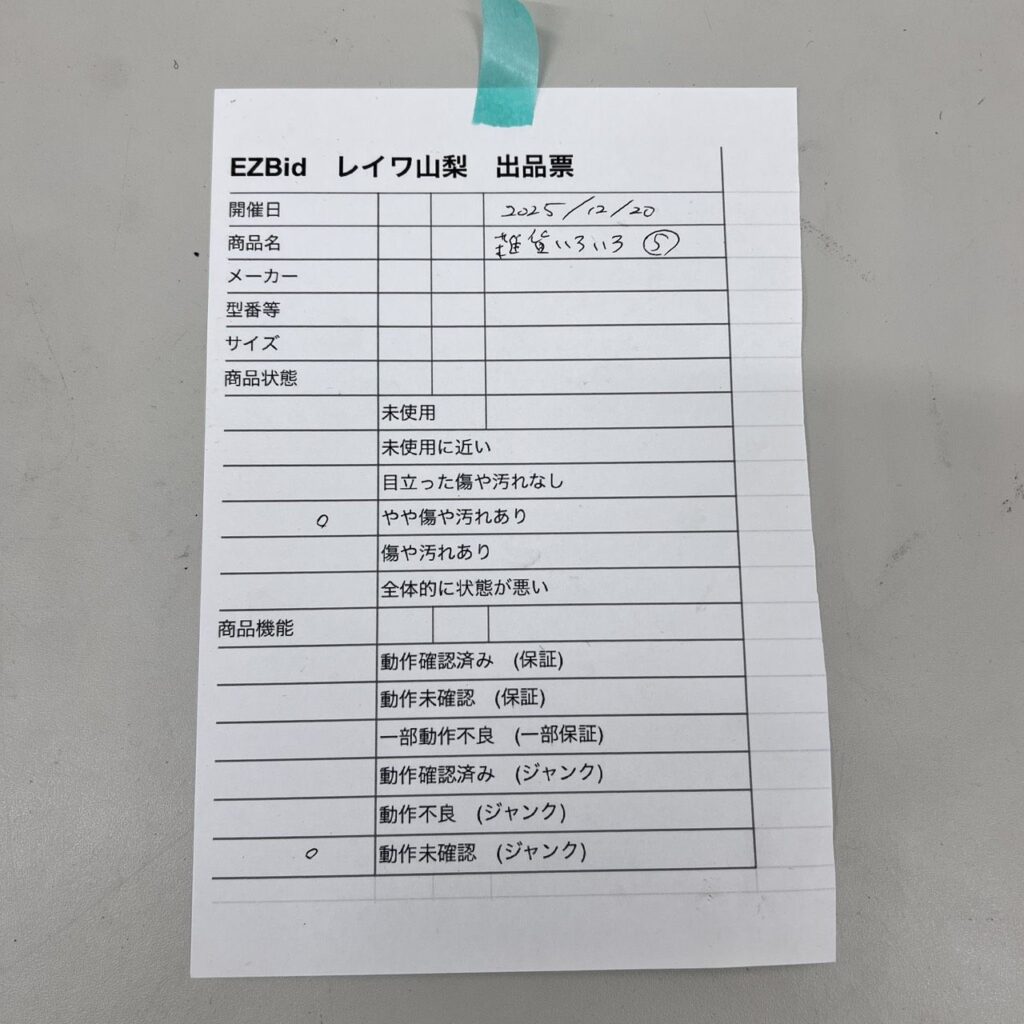 EZBid レイワ山梨 出品票
開催日 2025/12/20
商品名 雑貨いろいろ ⑤
メーカー
型番等
サイズ
商品状態
未使用
未使用に近い
目立った傷や汚れなし
○ やや傷や汚れあり
傷や汚れあり
全体的に状態が悪い
商品機能
動作確認済み (保証)
動作未確認 (保証)
一部動作不良 (一部保証)
動作確認済み (ジャンク)
動作不良 (ジャンク)
○ 動作未確認 (ジャンク)